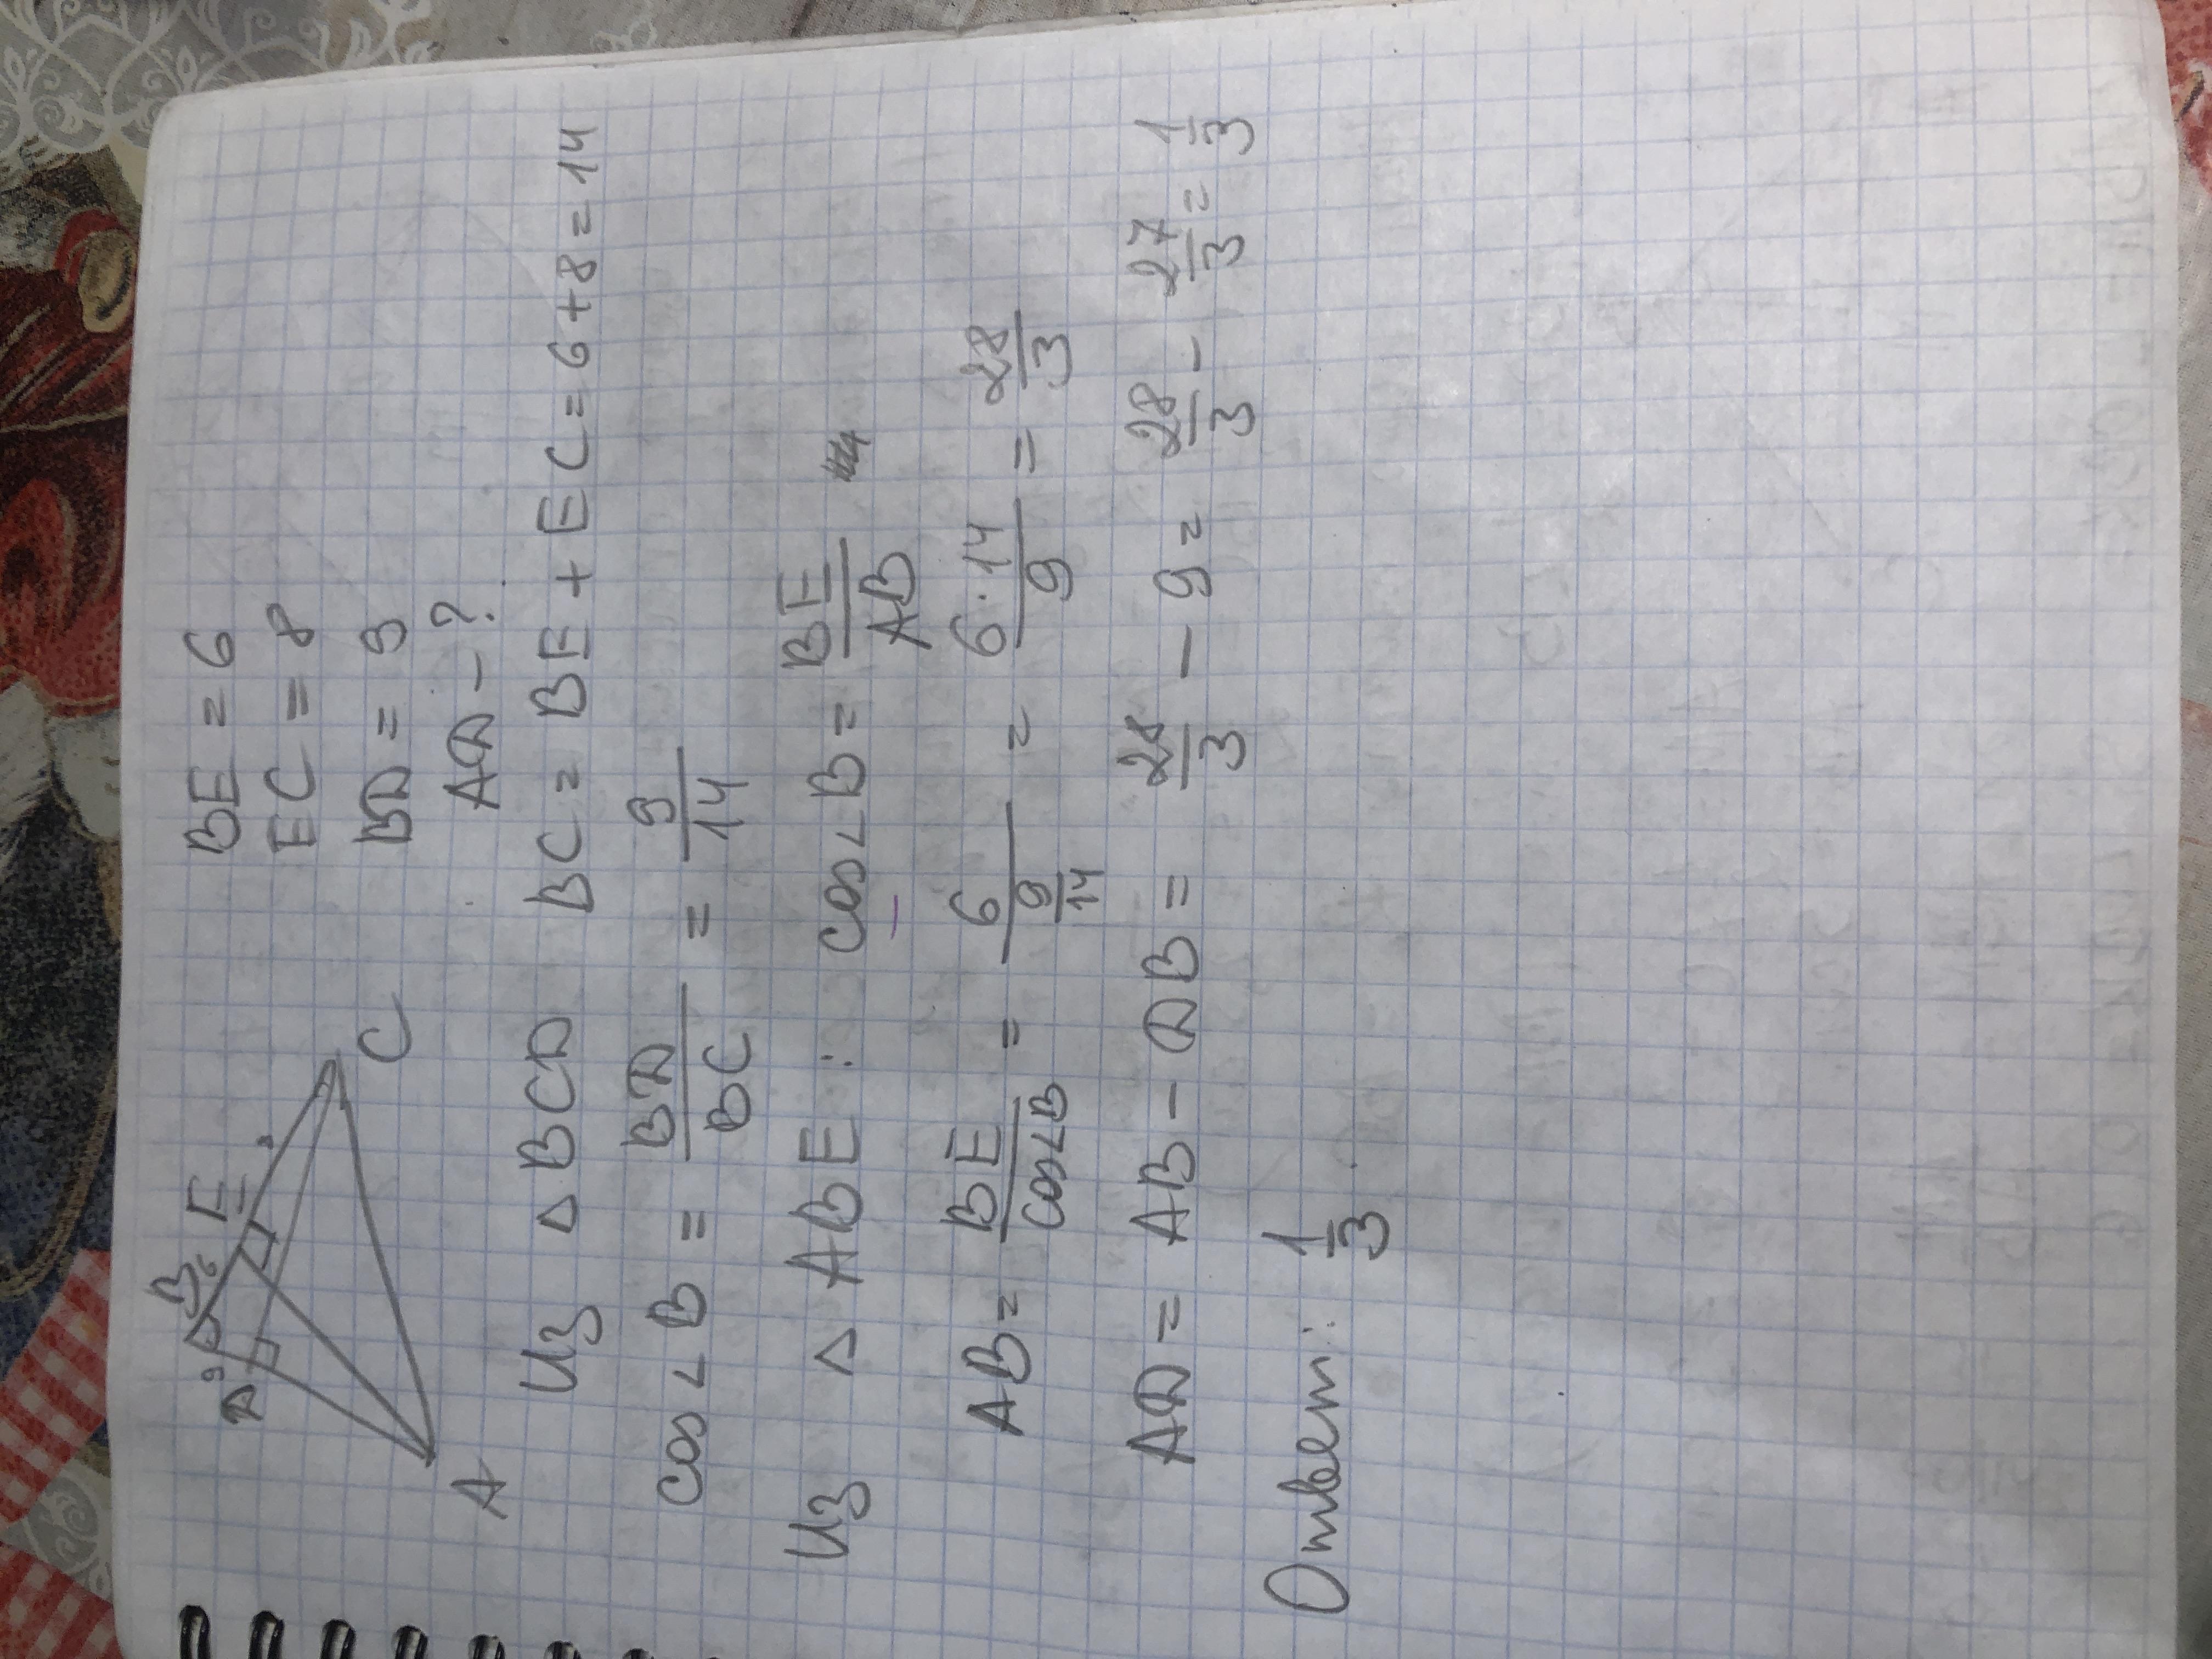 B
6
E
8
9
D
C
A
BE = 6
EC = 8
BD = 9
AD - ?
Из △ BCD BC = BE + EC = 6 + 8 = 14
cos ∠ B = BD/BC = 9/14
Из △ ABE : cos ∠ B = BE/AB
AB = BE/cos∠B = 6/(9/14) = 6·14/9 = 28/3
AD = AB - DB = 28/3 - 9 = 28/3 - 27/3 = 1/3
Ответ: 1/3